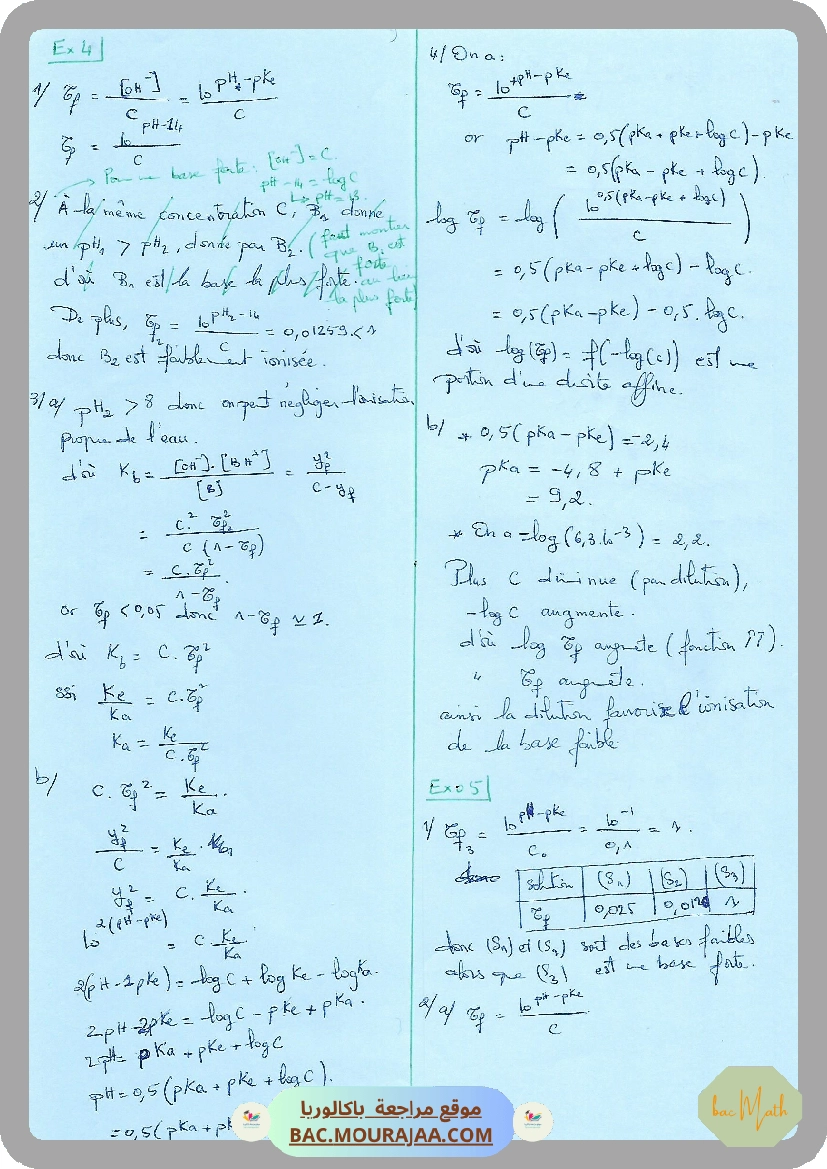 Ex 4
1/ τf = [OH⁻]/C = 10^(pH-pKe)/C
τf = 10^(pH-14)/C
→ Pour une base forte : [OH⁻] = C.
pH - 14 = log C
↳ pH = 13.
2/ À la même concentration C, B₁ donne
un pH₁ > pH₂, donné par B₂. (faut montrer
que B₁ est
forte
au lieu
la plus forte)
d'où B₁ est la base la plus forte.
De plus, τf₂ = 10^(pH₂-14)/C = 0,01259 < 1
donc B₂ est faiblement ionisée.
3/ a/ pH₂ > 8 donc on peut négliger l'ionisation
propre de l'eau.
d'où Kb = [OH⁻].[BH⁺]/[B] = yf²/(C - yf)
= C².τf₂²/(C (1 - τf))
= C.τf²/(1 - τf).
or τf < 0,05 donc 1 - τf ≃ 1.
d'où Kb = C.τf²
ssi Ke/Ka = C.τf²
Ka = Ke/(C.τf²)
b/ C.τf² = Ke/Ka.
yf²/C = Ke/Ka.
yf² = C.Ke/Ka.
10^(2(pH-pKe)) = C.Ke/Ka
2(pH-pKe) = log C + log Ke - log Ka.
2pH - 2pKe = log C - pKe + pKa.
2pH = pKa + pKe + log C
pH = 0,5 (pKa + pKe + log C).
= 0,5 (pKa + pK
4/ On a :
τf = 10^(+pH-pKe)/C
or pH - pKe = 0,5(pKa + pKe + log C) - pKe
= 0,5(pKa - pKe + log C).
log τf = log(10^(0,5(pKa-pKe+log C))/C)
= 0,5(pKa - pKe + log C) - log C.
= 0,5(pKa - pKe) - 0,5.log C.
d'où log(τf) = f(-log(C)) est une
portion d'une droite affine.
b/ * 0,5(pKa - pKe) = -2,4
pKa = -4,8 + pKe
= 9,2.
* On a -log(6,3.10⁻³) = 2,2.
Plus C diminue (par dilution),
-log C augmente.
d'où log τf augmte (fonction ↑↑).
" τf augmte.
ainsi la dilution favorise l'ionisation
de la base faible
Ex 05
1/ τf₃ = 10^(pH-pKe)/C₀ = 10⁻¹/0,1 = 1.
solution (S₁) (S₂) (S₃)
τf 0,025 0,012 1
donc (S₁) et (S₂) sont des bases faibles
alors que (S₃) est une base forte.
2/ a/ τf = 10^(pH-pKe)/C
موقع مراجعة باكالوريا
BAC.MOURAJAA.COM
bac Math